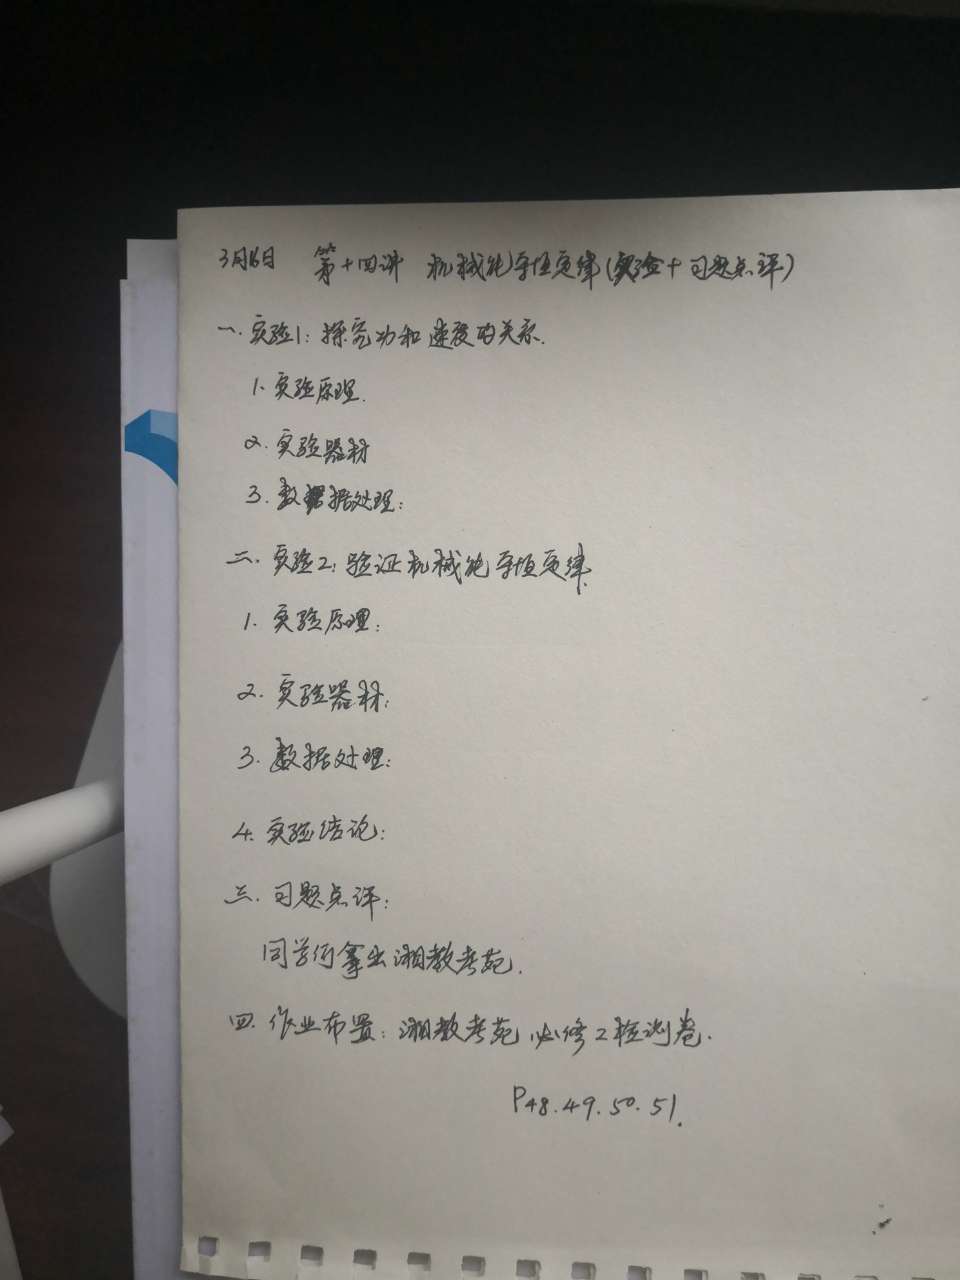 3月16日 第十四讲 机械能守恒定律(实验+习题点评)
一.实验1:探究功和速度的关系.
1.实验原理.
2.实验器材
3.数据处理:
二.实验2:验证机械能守恒定律.
1.实验原理:
2.实验器材:
3.数据处理:
4.实验结论:
三.习题点评:
同学们拿出湘教考苑.
四.作业布置:湘教考苑 必修2检测卷.
P48.49.50.51.